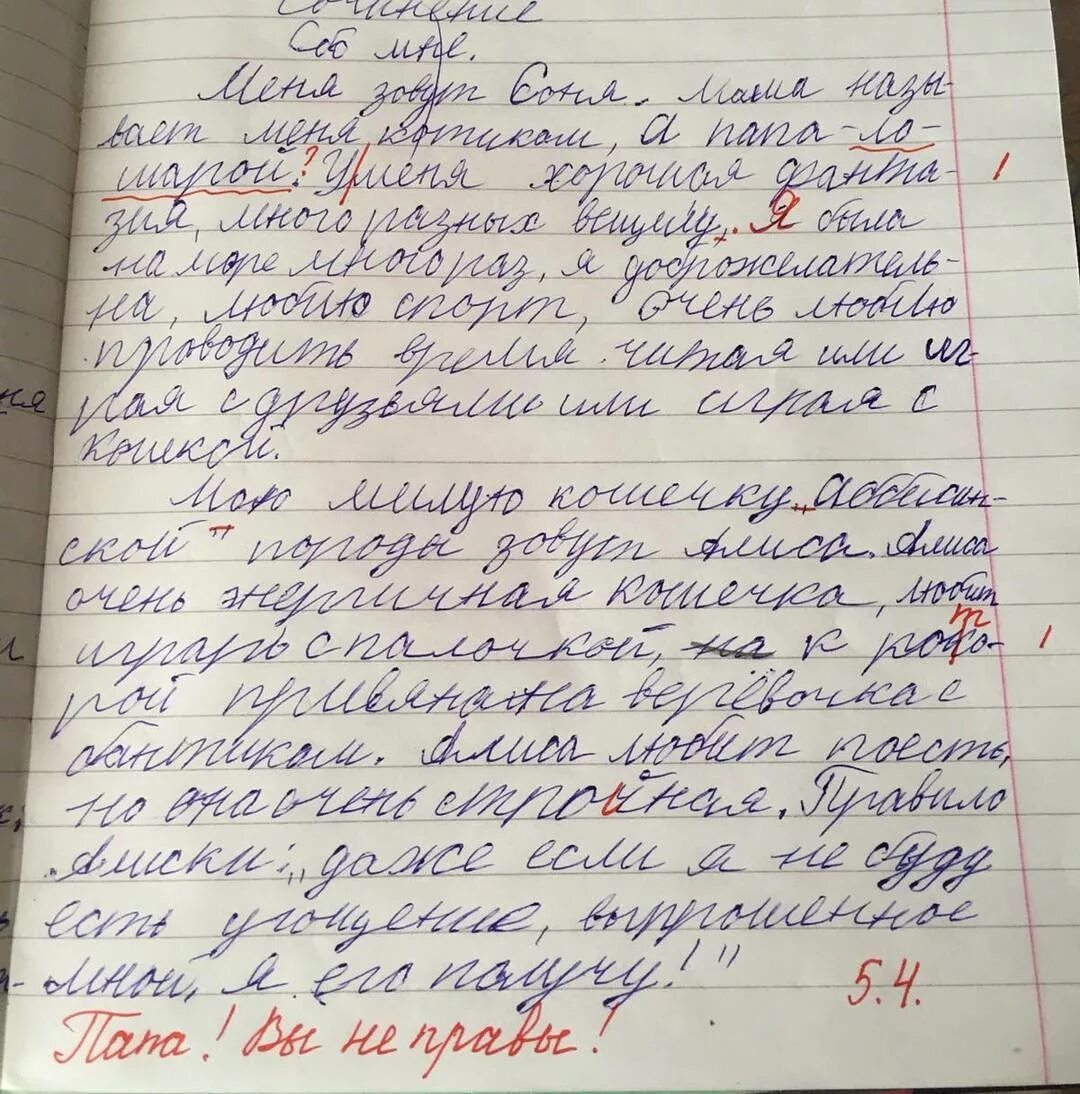 Сочинение
Соб мне.
Меня зовут Соня. Мама назы-
вает меня котиком, а папа-ло-
шарой.? У меня хорошая фанта- 1
зия, много разных вещей, . Я была
на море много раз, я доброжелатель-
на, люблю спорт, очень люблю
проводить время читая или иг-
рая с друзьями или играя с
кошкой.
Мою милую кошечку „Аббисин-
ской" породы зовут Алиса. Алиса
очень энергичная кошечка, любит
играть с палочкой, на к рото- 1
рой привязана верёвочка с
бантиком. Алиса любит поесть,
но она очень стройная. Правило
Алиски: „даже если я не буду
есть угощение, выпрошенное
мной, я его получу!"
5.4.
Папа! Вы не правы!